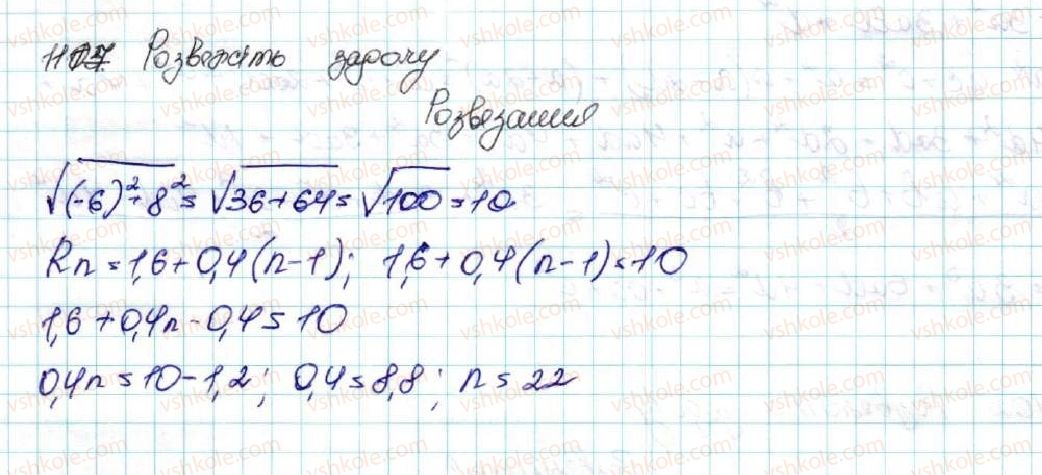 1107 Розвежіть задачу
Розвезания
√(-6)²+8² = √36+64 = √100 = 10
Rn = 1,6+0,4(n-1); 1,6+0,4(n-1)=10
1,6+0,4n-0,4=10
0,4n=10-1,2; 0,4=8,8; n=22